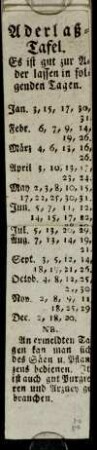 Aderlaß-
Tafel.
Es ist gut zur A-
der lassen in fol-
genden Tagen.
Jan. 3, 15, 17, 30,
31.
Febr. 6, 7, 9, 14,
19, 26.
März 4, 6, 13, 16,
26.
April 3, 10, 13, 17,
23, 24.
May 2, 3, 8, 10, 15,
17, 22, 25, 30, 31.
Jun. 5, 7, 11, 12,
14, 15, 17,
Jul. 5, 13, 20, 29,
Aug. 7, 13, 14, 19,
21.
Sept. 3, 5, 12, 14,
18, 17, 21, 26.
Octob. 4, 8, 12, 25,
30.
Nov. 2, 8, 9, 11
18, 25, 29
Dec. 2, 18, 20.
NB.
An ermeldten Ta-
gen kan man sich
des Säen u. Pflan-
zens bedienen. It
ist auch gut Purgie-
ren und Arzney ge-
brauchen.